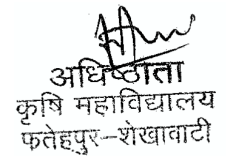 अधिष्ठाता
कृषि महाविद्यालय
फतेहपुर-शेखावाटी